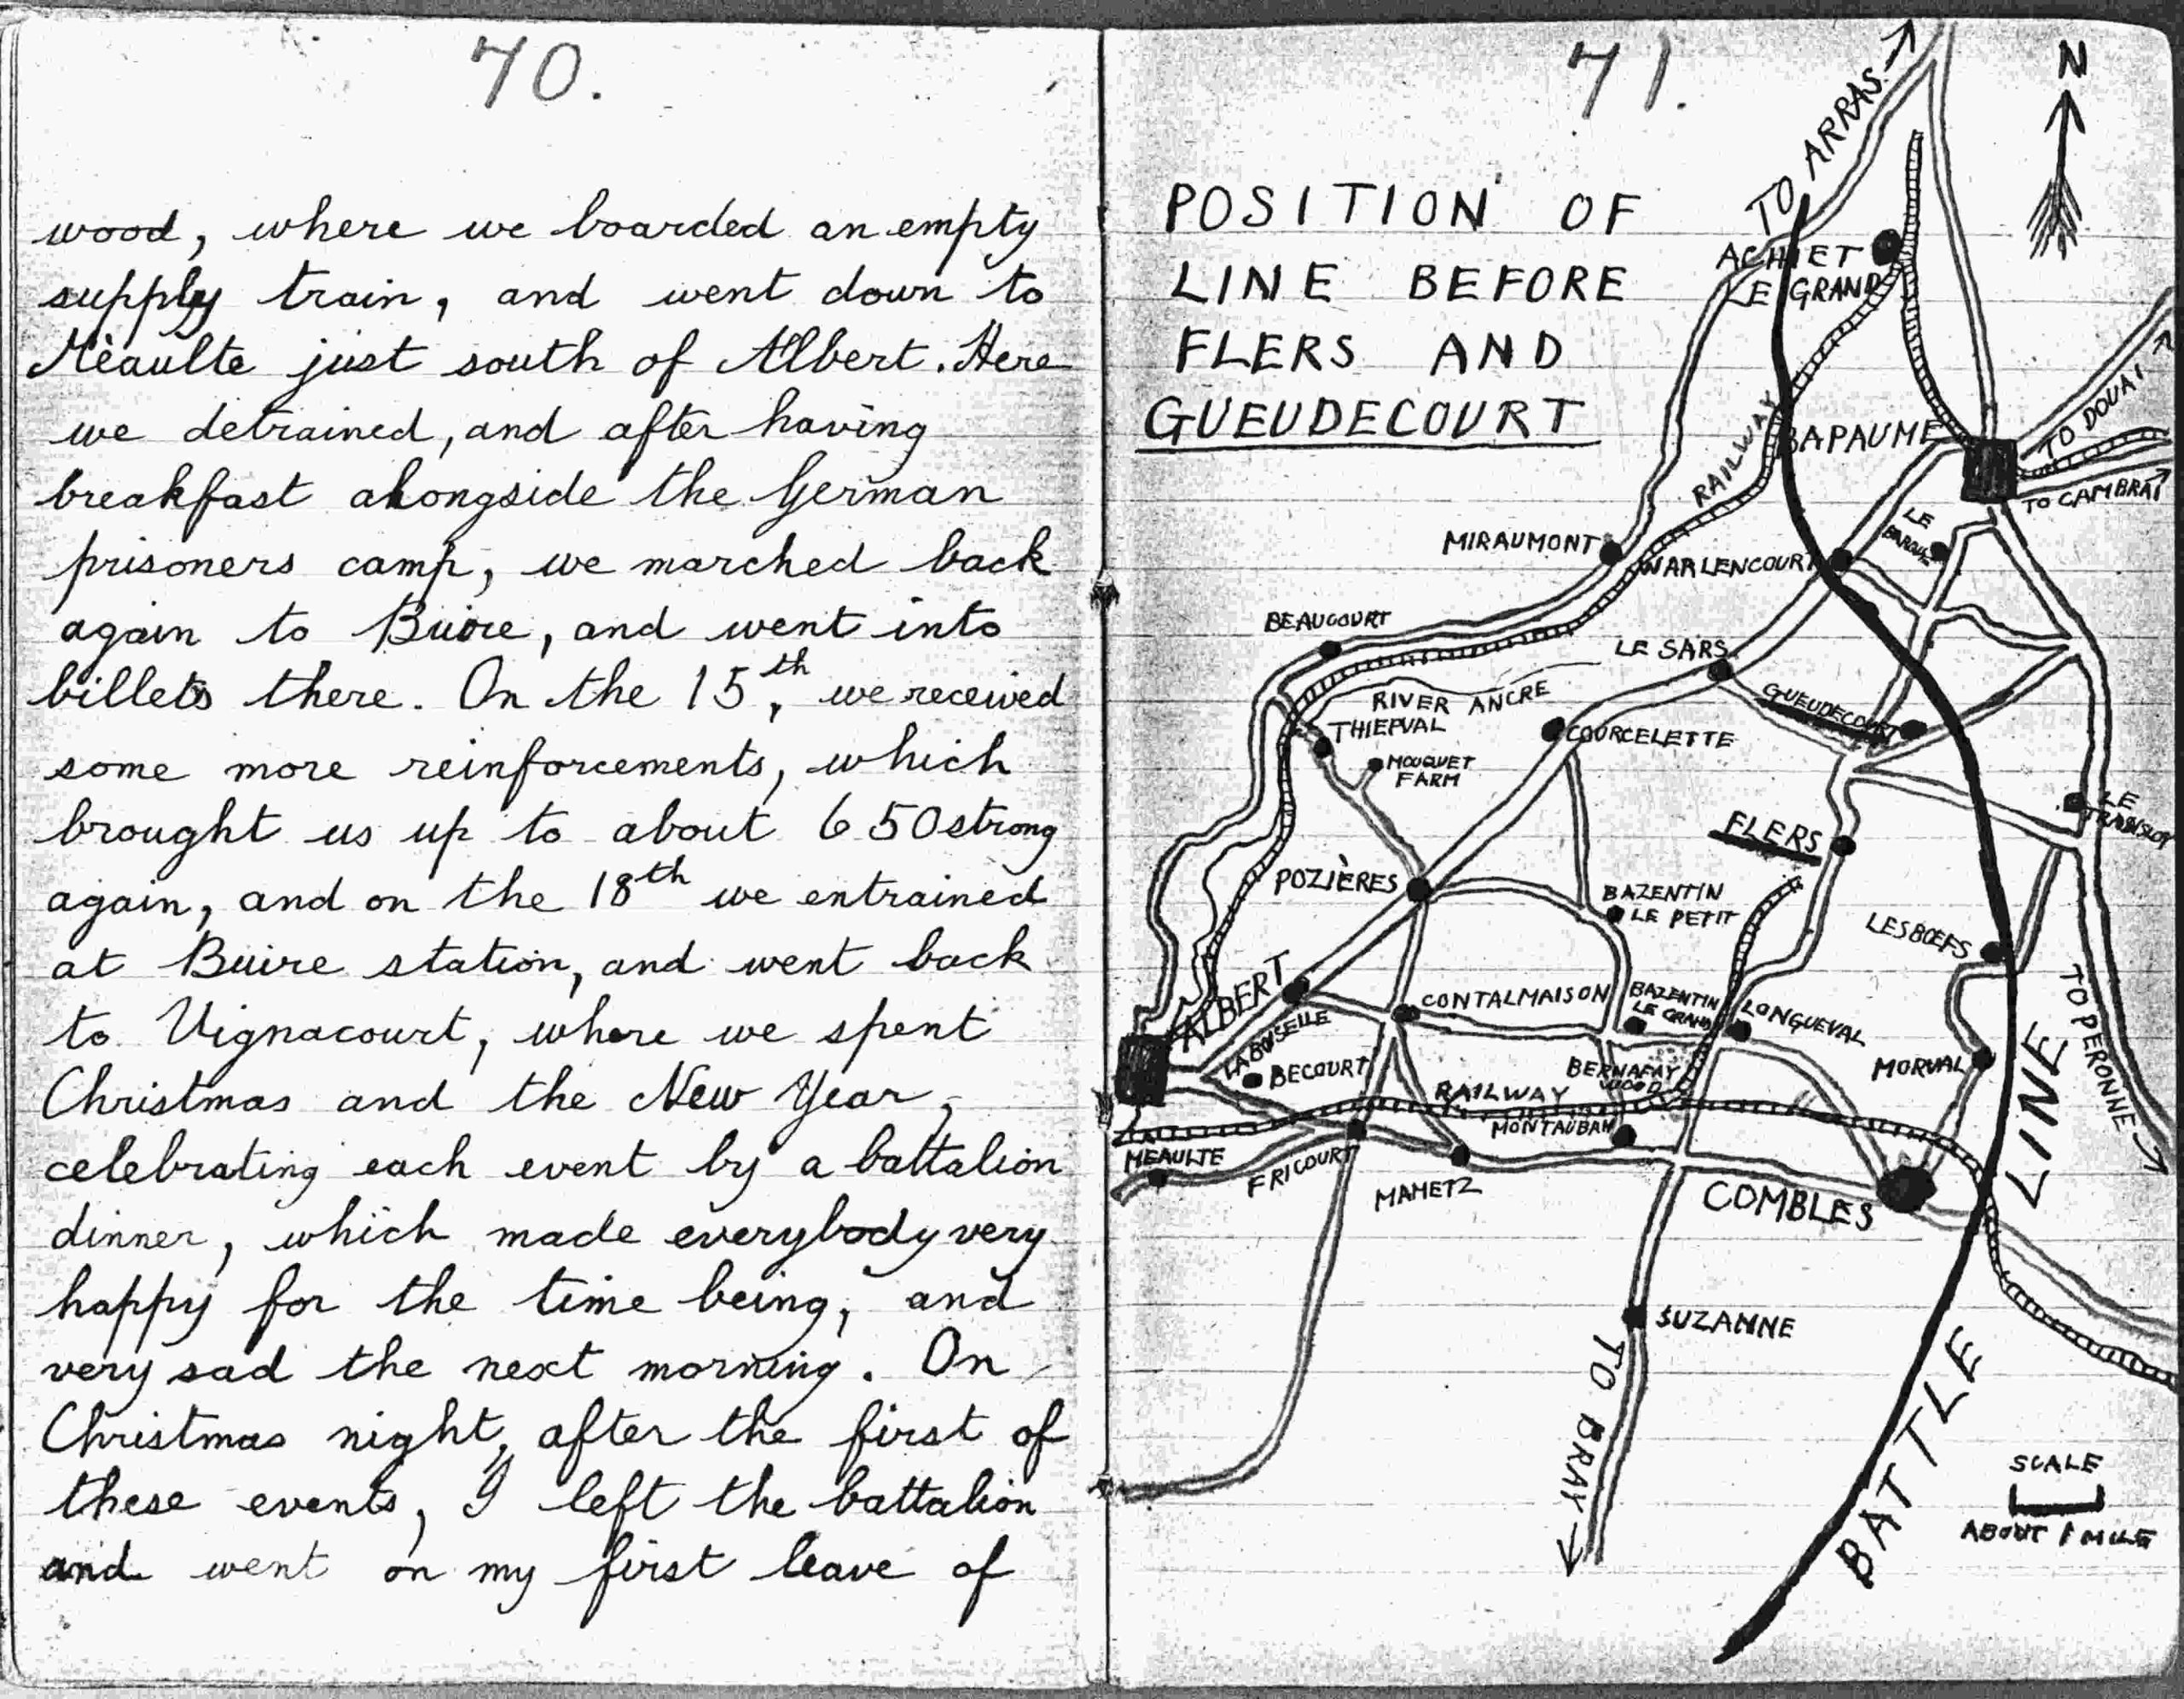 70.
wood, where we boarded an empty
supply train, and went down to
Méaulte just south of Albert. Here
we detrained, and after having
breakfast alongside the German
prisoners camp, we marched back
again to Buire, and went into
billets there. On the 15th, we received
some more reinforcements, which
brought us up to about 650 strong
again, and on the 18th we entrained
at Buire station, and went back
to Vignacourt, where we spent
Christmas and the New Year,
celebrating each event by a battalion
dinner, which made everybody very
happy for the time being, and
very sad the next morning. On
Christmas night, after the first of
these events, I left the battalion
and went on my first leave of
71.
POSITION OF
LINE BEFORE
FLERS AND
GUEUDECOURT
N
TO ARRAS
ACHIET
LE GRAND
RAILWAY
BAPAUME
TO DOUAI
TO CAMBRAI
MIRAUMONT
WARLENCOURT
LE
BARQUE
BEAUCOURT
LE SARS
RIVER ANCRE
GUEUDECOURT
THIEPVAL
COURCELETTE
MOUQUET
FARM
LE
TRANSLOY
FLERS
POZIÈRES
BAZENTIN
LE PETIT
LESBŒFS
ALBERT
LA BOISELLE
CONTALMAISON
BAZENTIN
LE GRAND
LONGUEVAL
TO PERONNE
BECOURT
BERNAFAY
WOOD
MORVAL
RAILWAY
MONTAUBAN
MEAULTE
FRICOURT
MAMETZ
COMBLES
SUZANNE
TO BRAY
BATTLE LINE
SCALE
ABOUT 1 MILE